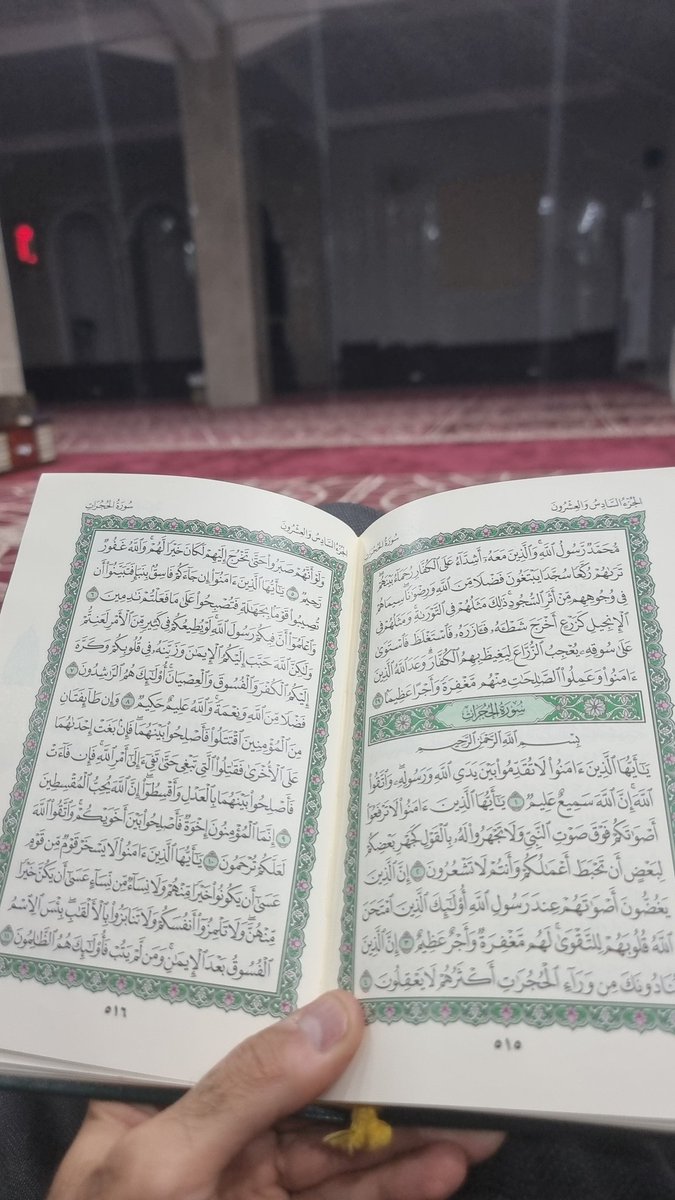 الجُزْءُ السَّادِسُ وَالعِشْرُونَ
سُورَةُ الحُجُرَاتِ
مُّحَمَّدٌ رَّسُولُ ٱللَّهِ وَٱلَّذِينَ مَعَهُۥٓ أَشِدَّآءُ عَلَى ٱلْكُفَّارِ رُحَمَآءُ بَيْنَهُمْ
تَرَىٰهُمْ رُكَّعًا سُجَّدًا يَبْتَغُونَ فَضْلًا مِّنَ ٱللَّهِ وَرِضْوَٰنًا سِيمَاهُمْ
فِى وُجُوهِهِم مِّنْ أَثَرِ ٱلسُّجُودِ ذَٰلِكَ مَثَلُهُمْ فِى ٱلتَّوْرَىٰةِ وَمَثَلُهُمْ فِى
ٱلْإِنجِيلِ كَزَرْعٍ أَخْرَجَ شَطْـَٔهُۥ فَـَٔازَرَهُۥ فَٱسْتَغْلَظَ فَٱسْتَوَىٰ
عَلَىٰ سُوقِهِۦ يُعْجِبُ ٱلزُّرَّاعَ لِيَغِيظَ بِهِمُ ٱلْكُفَّارَ وَعَدَ ٱللَّهُ ٱلَّذِينَ
ءَامَنُوا۟ وَعَمِلُوا۟ ٱلصَّٰلِحَٰتِ مِنْهُم مَّغْفِرَةً وَأَجْرًا عَظِيمًۢا ٢٩
سُورَةُ الحُجُرَاتِ
بِسْمِ ٱللَّهِ ٱلرَّحْمَٰنِ ٱلرَّحِيمِ
يَٰٓأَيُّهَا ٱلَّذِينَ ءَامَنُوا۟ لَا تُقَدِّمُوا۟ بَيْنَ يَدَىِ ٱللَّهِ وَرَسُولِهِۦ وَٱتَّقُوا۟
ٱللَّهَ إِنَّ ٱللَّهَ سَمِيعٌ عَلِيمٌ ١ يَٰٓأَيُّهَا ٱلَّذِينَ ءَامَنُوا۟ لَا تَرْفَعُوٓا۟
أَصْوَٰتَكُمْ فَوْقَ صَوْتِ ٱلنَّبِىِّ وَلَا تَجْهَرُوا۟ لَهُۥ بِٱلْقَوْلِ كَجَهْرِ بَعْضِكُمْ
لِبَعْضٍ أَن تَحْبَطَ أَعْمَٰلُكُمْ وَأَنتُمْ لَا تَشْعُرُونَ ٢ إِنَّ ٱلَّذِينَ
يَغُضُّونَ أَصْوَٰتَهُمْ عِندَ رَسُولِ ٱللَّهِ أُو۟لَٰٓئِكَ ٱلَّذِينَ ٱمْتَحَنَ
ٱللَّهُ قُلُوبَهُمْ لِلتَّقْوَىٰ لَهُم مَّغْفِرَةٌ وَأَجْرٌ عَظِيمٌ ٣ إِنَّ ٱلَّذِينَ
يُنَادُونَكَ مِن وَرَآءِ ٱلْحُجُرَٰتِ أَكْثَرُهُمْ لَا يَعْقِلُونَ ٤
٥١٥
الجُزْءُ السَّادِسُ وَالعِشْرُونَ
سُورَةُ الحُجُرَاتِ
وَلَوْ أَنَّهُمْ صَبَرُوا۟ حَتَّىٰ تَخْرُجَ إِلَيْهِمْ لَكَانَ خَيْرًا لَّهُمْ وَٱللَّهُ غَفُورٌ
رَّحِيمٌ ٥ يَٰٓأَيُّهَا ٱلَّذِينَ ءَامَنُوٓا۟ إِن جَآءَكُمْ فَاسِقٌۢ بِنَبَإٍ فَتَبَيَّنُوٓا۟ أَن
تُصِيبُوا۟ قَوْمًۢا بِجَهَٰلَةٍ فَتُصْبِحُوا۟ عَلَىٰ مَا فَعَلْتُمْ نَٰدِمِينَ ٦
وَٱعْلَمُوٓا۟ أَنَّ فِيكُمْ رَسُولَ ٱللَّهِ لَوْ يُطِيعُكُمْ فِى كَثِيرٍ مِّنَ ٱلْأَمْرِ لَعَنِتُّمْ
وَلَٰكِنَّ ٱللَّهَ حَبَّبَ إِلَيْكُمُ ٱلْإِيمَٰنَ وَزَيَّنَهُۥ فِى قُلُوبِكُمْ وَكَرَّهَ
إِلَيْكُمُ ٱلْكُفْرَ وَٱلْفُسُوقَ وَٱلْعِصْيَانَ أُو۟لَٰٓئِكَ هُمُ ٱلرَّٰشِدُونَ ٧
فَضْلًا مِّنَ ٱللَّهِ وَنِعْمَةً وَٱللَّهُ عَلِيمٌ حَكِيمٌ ٨ وَإِن طَآئِفَتَانِ
مِنَ ٱلْمُؤْمِنِينَ ٱقْتَتَلُوا۟ فَأَصْلِحُوا۟ بَيْنَهُمَا فَإِنۢ بَغَتْ إِحْدَىٰهُمَا
عَلَى ٱلْأُخْرَىٰ فَقَٰتِلُوا۟ ٱلَّتِى تَبْغِى حَتَّىٰ تَفِىٓءَ إِلَىٰٓ أَمْرِ ٱللَّهِ فَإِن فَآءَتْ
فَأَصْلِحُوا۟ بَيْنَهُمَا بِٱلْعَدْلِ وَأَقْسِطُوٓا۟ إِنَّ ٱللَّهَ يُحِبُّ ٱلْمُقْسِطِينَ
٩ إِنَّمَا ٱلْمُؤْمِنُونَ إِخْوَةٌ فَأَصْلِحُوا۟ بَيْنَ أَخَوَيْكُمْ وَٱتَّقُوا۟ ٱللَّهَ
لَعَلَّكُمْ تُرْحَمُونَ ١٠ يَٰٓأَيُّهَا ٱلَّذِينَ ءَامَنُوا۟ لَا يَسْخَرْ قَوْمٌ مِّن قَوْمٍ
عَسَىٰٓ أَن يَكُونُوا۟ خَيْرًا مِّنْهُمْ وَلَا نِسَآءٌ مِّن نِّسَآءٍ عَسَىٰٓ أَن يَكُنَّ خَيْرًا
مِّنْهُنَّ وَلَا تَلْمِزُوٓا۟ أَنفُسَكُمْ وَلَا تَنَابَزُوا۟ بِٱلْأَلْقَٰبِ بِئْسَ ٱلِٱسْمُ
ٱلْفُسُوقُ بَعْدَ ٱلْإِيمَٰنِ وَمَن لَّمْ يَتُبْ فَأُو۟لَٰٓئِكَ هُمُ ٱلظَّٰلِمُونَ ١١
٥١٦